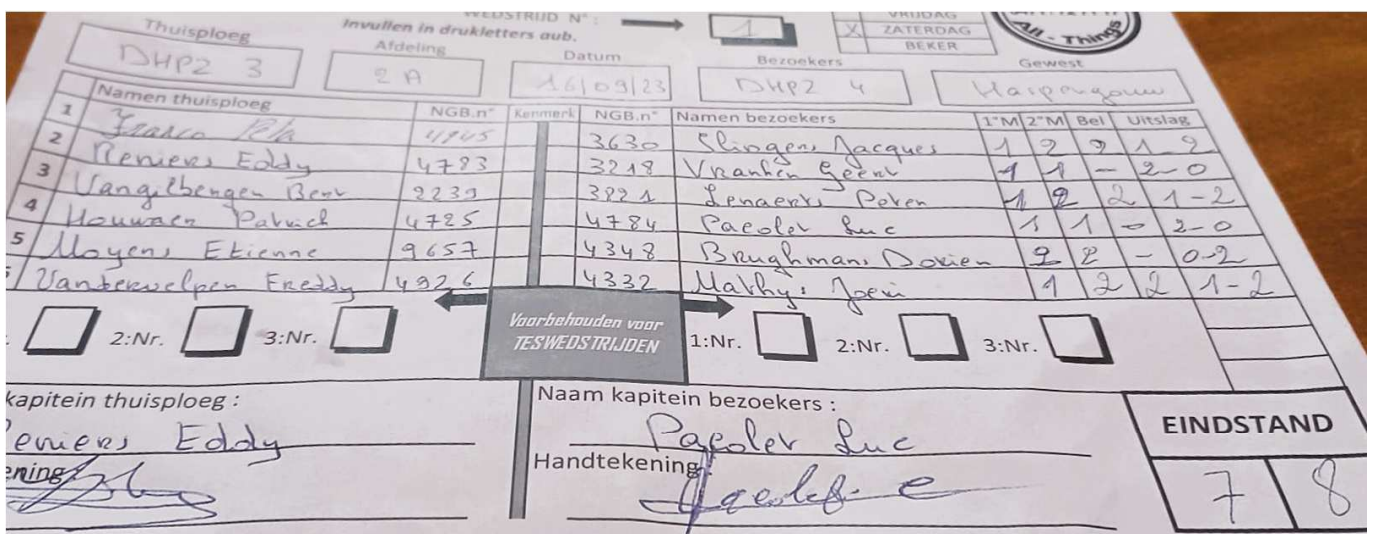 WEDSTRIJD N° : 1
Invullen in drukletters aub.
VRIJDAG
X ZATERDAG
BEKER
All - Things
Thuisploeg Afdeling Datum Bezoekers Gewest
DHPZ 3 2 A 16/09/23 DHPZ 4 Haspengouw
Namen thuisploeg NGB.n° Kenmerk NGB.n° Namen bezoekers 1°M 2°M Bel Uitslag
1 Franco 3630 Slingers Jacques 1 2 2 1-2
2 Reniers Eddy 4783 3218 Vranken Geert 1 1 - 2-0
3 Vangilbergen Bert 2239 3221 Lenaerts Peter 1 2 2 1-2
4 Houwaer Patrick 4725 4784 Paeolet Luc 1 1 - 2-0
5 Moyens Etienne 9657 4348 Brughmans Dorien 2 2 - 0-2
Vandervelpen Freddy 4926 4332 Mathys 1 2 2 1-2
2:Nr. 3:Nr. Voorbehouden voor TESWEDSTRIJDEN 1:Nr. 2:Nr. 3:Nr.
kapitein thuisploeg : Naam kapitein bezoekers :
eniers Eddy Paeolet Luc
EINDSTAND
ening Handtekening :
7 8